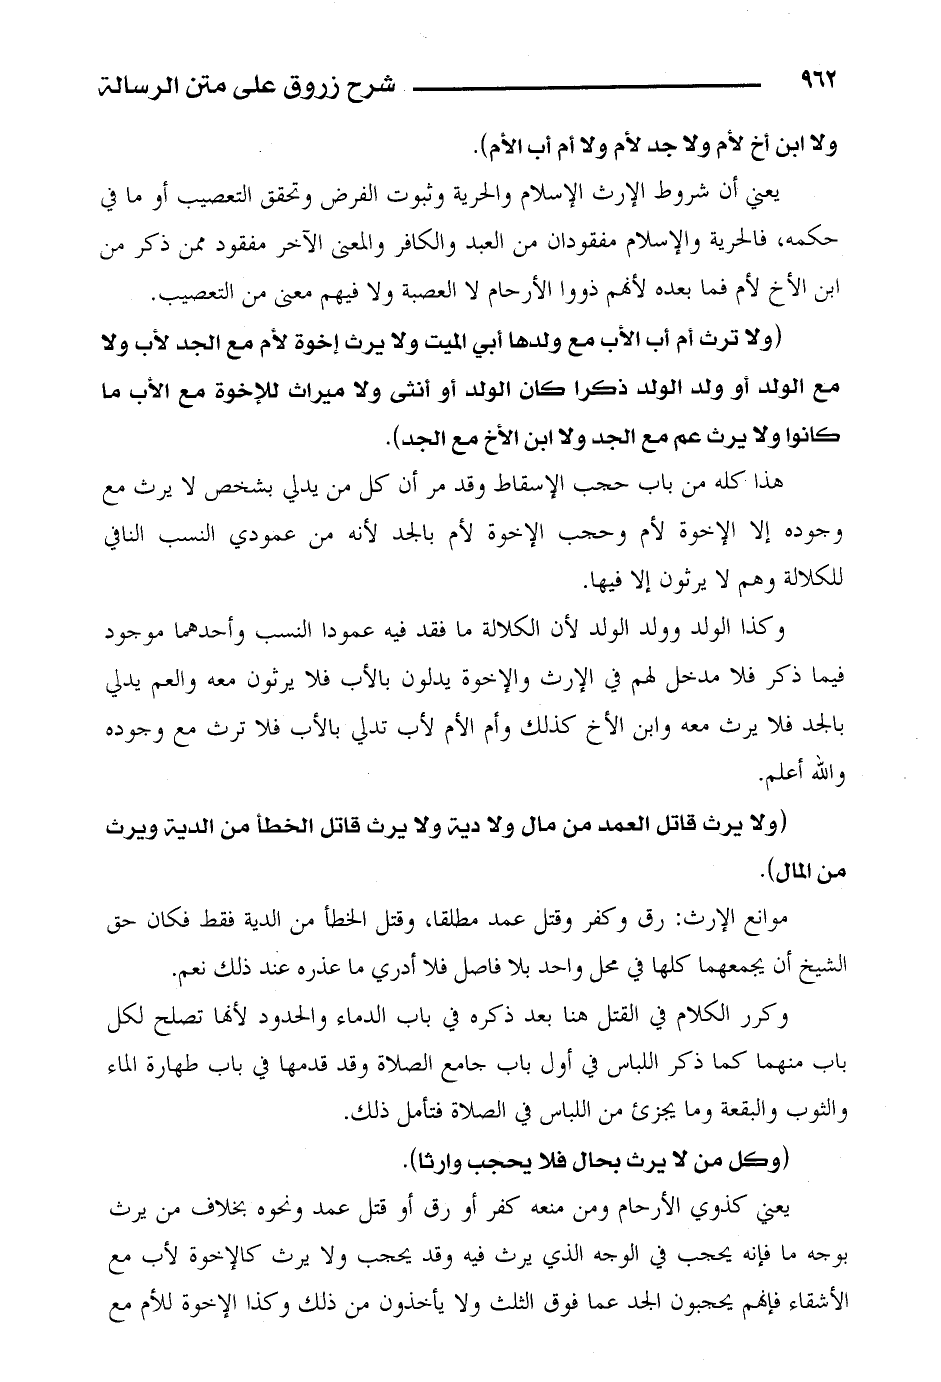 ٩٦٢ شرح زروق على متن الرسالة
ولا ابن أخ لأم ولا جد لأم ولا أم أب الأم).
يعني أن شروط الإرث الإسلام والحرية وثبوت الفرض وتحقق التعصيب أو ما في
حكمه، فالحرية والإسلام مفقودان من العبد والكافر والمعنى الآخر مفقود ممن ذكر من
ابن الأخ لأم فما بعده لأنهم ذووا الأرحام لا العصبة ولا فيهم معنى من التعصيب.
(ولا ترث أم أب الأب مع ولدها أبي الميت ولا يرث إخوة لأم مع الجد لأب ولا
مع الولد أو ولد الولد ذكرا كان الولد أو أنثى ولا ميراث للإخوة مع الأب ما
كانوا ولا يرث عم مع الجد ولا ابن الأخ مع الجد).
هذا كله من باب حجب الإسقاط وقد مر أن كل من يدلي بشخص لا يرث مع
وجوده إلا الإخوة لأم وحجب الإخوة لأم بالجد لأنه من عمودي النسب النافي
للكلالة وهم لا يرثون إلا فيها.
وكذا الولد وولد الولد لأن الكلالة ما فقد فيه عمودا النسب وأحدهما موجود
فيما ذكر فلا مدخل لهم في الإرث والإخوة يدلون بالأب فلا يرثون معه والعم يدلي
بالجد فلا يرث معه وابن الأخ كذلك وأم الأم لأب تدلي بالأب فلا ترث مع وجوده
والله أعلم.
(ولا يرث قاتل العمد من مال ولا دية ولا يرث قاتل الخطأ من الدية ويرث
من المال).
موانع الإرث: رق وكفر وقتل عمد مطلقا، وقتل الخطأ من الدية فقط فكان حق
الشيخ أن يجمعهما كلها في محل واحد بلا فاصل فلا أدري ما عذره عند ذلك نعم.
وكرر الكلام في القتل هنا بعد ذكره في باب الدماء والحدود لأنها تصلح لكل
باب منهما كما ذكر اللباس في أول باب جامع الصلاة وقد قدمها في باب طهارة الماء
والثوب والبقعة وما يجزئ من اللباس في الصلاة فتأمل ذلك.
(وكل من لا يرث بحال فلا يحجب وارثا).
يعني كذوي الأرحام ومن منعه كفر أو رق أو قتل عمد ونحوه بخلاف من يرث
بوجه ما فإنه يحجب في الوجه الذي يرث فيه وقد يحجب ولا يرث كالإخوة لأب مع
الأشقاء فإنهم يحجبون الجد عما فوق الثلث ولا يأخذون من ذلك وكذا الإخوة للأم مع